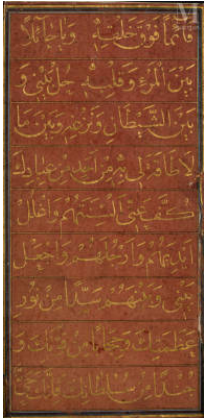 قائما فوق خلقه ويا حائلا
بين المرء وقلبه حل بيني و
بين الشيطان ونزغه وبين ما
لا طاقة لي به من احد من عبادك
كف عني السنتهم واغلل
ايديهم وارجلهم واجعل
بيني وبينهم سدا من نور
عظمتك وحجابا من قوتك و
جندا من سلطانك